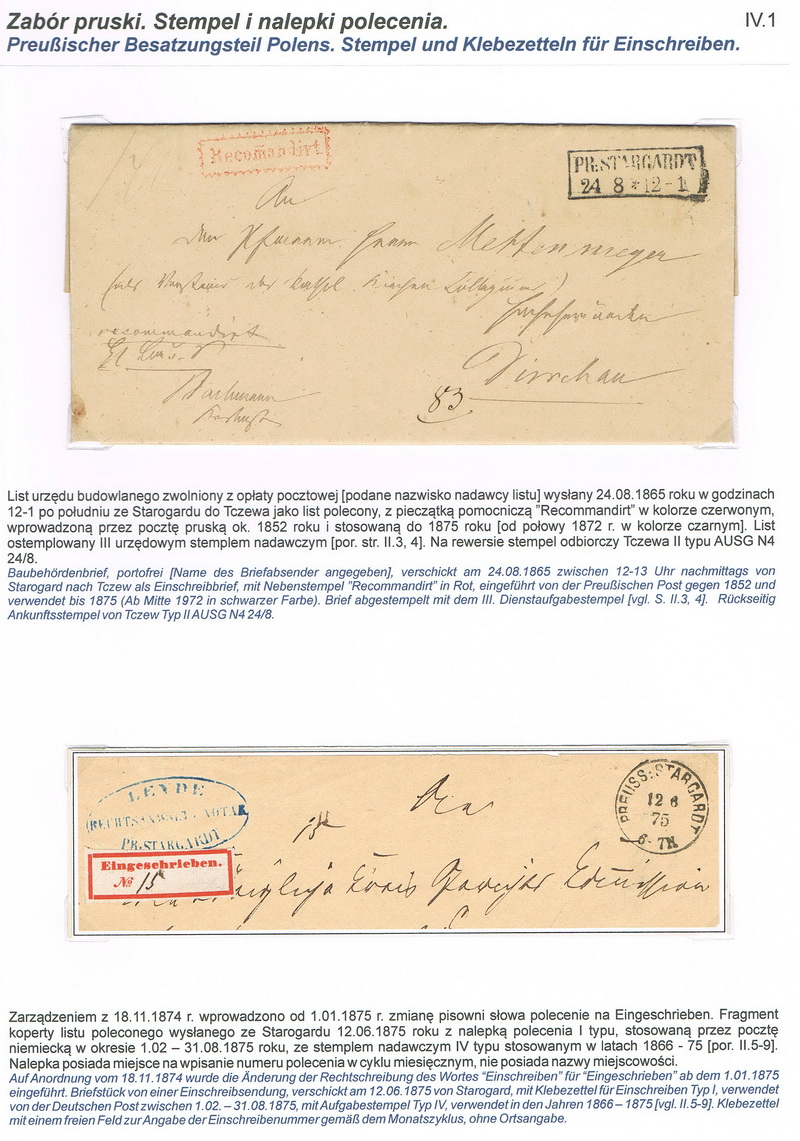 Zabór pruski. Stempel i nalepki polecenia.
IV.1
Preußischer Besatzungsteil Polens. Stempel und Klebezetteln für Einschreiben.
Recomandirt
PR:STARGARDT
24 8 * 12 - 1
An
den Herrn
recommandirt
Bachmann
Dirschau
83
List urzędu budowlanego zwolniony z opłaty pocztowej [podane nazwisko nadawcy listu] wysłany 24.08.1865 roku w godzinach
12-1 po południu ze Starogardu do Tczewa jako list polecony, z pieczątką pomocniczą "Recommandirt" w kolorze czerwonym,
wprowadzoną przez pocztę pruską ok. 1852 roku i stosowaną do 1875 roku [od połowy 1872 r. w kolorze czarnym]. List
ostemplowany III urzędowym stemplem nadawczym [por. str. II.3, 4]. Na rewersie stempel odbiorczy Tczewa II typu AUSG N4
24/8.
Baubehördenbrief, portofrei [Name des Briefabsender angegeben], verschickt am 24.08.1865 zwischen 12-13 Uhr nachmittags von
Starogard nach Tczew als Einschreibbrief, mit Nebenstempel "Recommandirt" in Rot, eingeführt von der Preußischen Post gegen 1852 und
verwendet bis 1875 (Ab Mitte 1972 in schwarzer Farbe). Brief abgestempelt mit dem III. Dienstaufgabestempel [vgl. S. II.3, 4]. Rückseitig
Ankunftsstempel von Tczew Typ II AUSG N4 24/8.
LEYDE
RECHTSANWALT u. NOTAR
PR:STARGARDT
PREUSS:STARGARDT
12 6
75
6-7N
Eingeschrieben.
№ 15
Zarządzeniem z 18.11.1874 r. wprowadzono od 1.01.1875 r. zmianę pisowni słowa polecenie na Eingeschrieben. Fragment
koperty listu poleconego wysłanego ze Starogardu 12.06.1875 roku z nalepką polecenia I typu, stosowaną przez pocztę
niemiecką w okresie 1.02 – 31.08.1875 roku, ze stemplem nadawczym IV typu stosowanym w latach 1866 - 75 [por. II.5-9].
Nalepka posiada miejsce na wpisanie numeru polecenia w cyklu miesięcznym, nie posiada nazwy miejscowości.
Auf Anordnung vom 18.11.1874 wurde die Änderung der Rechtschreibung des Wortes "Einschreiben" für "Eingeschrieben" ab dem 1.01.1875
eingeführt. Briefstück von einer Einschreibsendung, verschickt am 12.06.1875 von Starogard, mit Klebezettel für Einschreiben Typ I, verwendet
von der Deutschen Post zwischen 1.02. – 31.08.1875, mit Aufgabestempel Typ IV, verwendet in den Jahren 1866 – 1875 [vgl. II.5-9]. Klebezettel
mit einem freien Feld zur Angabe der Einschreibenummer gemäß dem Monatszyklus, ohne Ortsangabe.